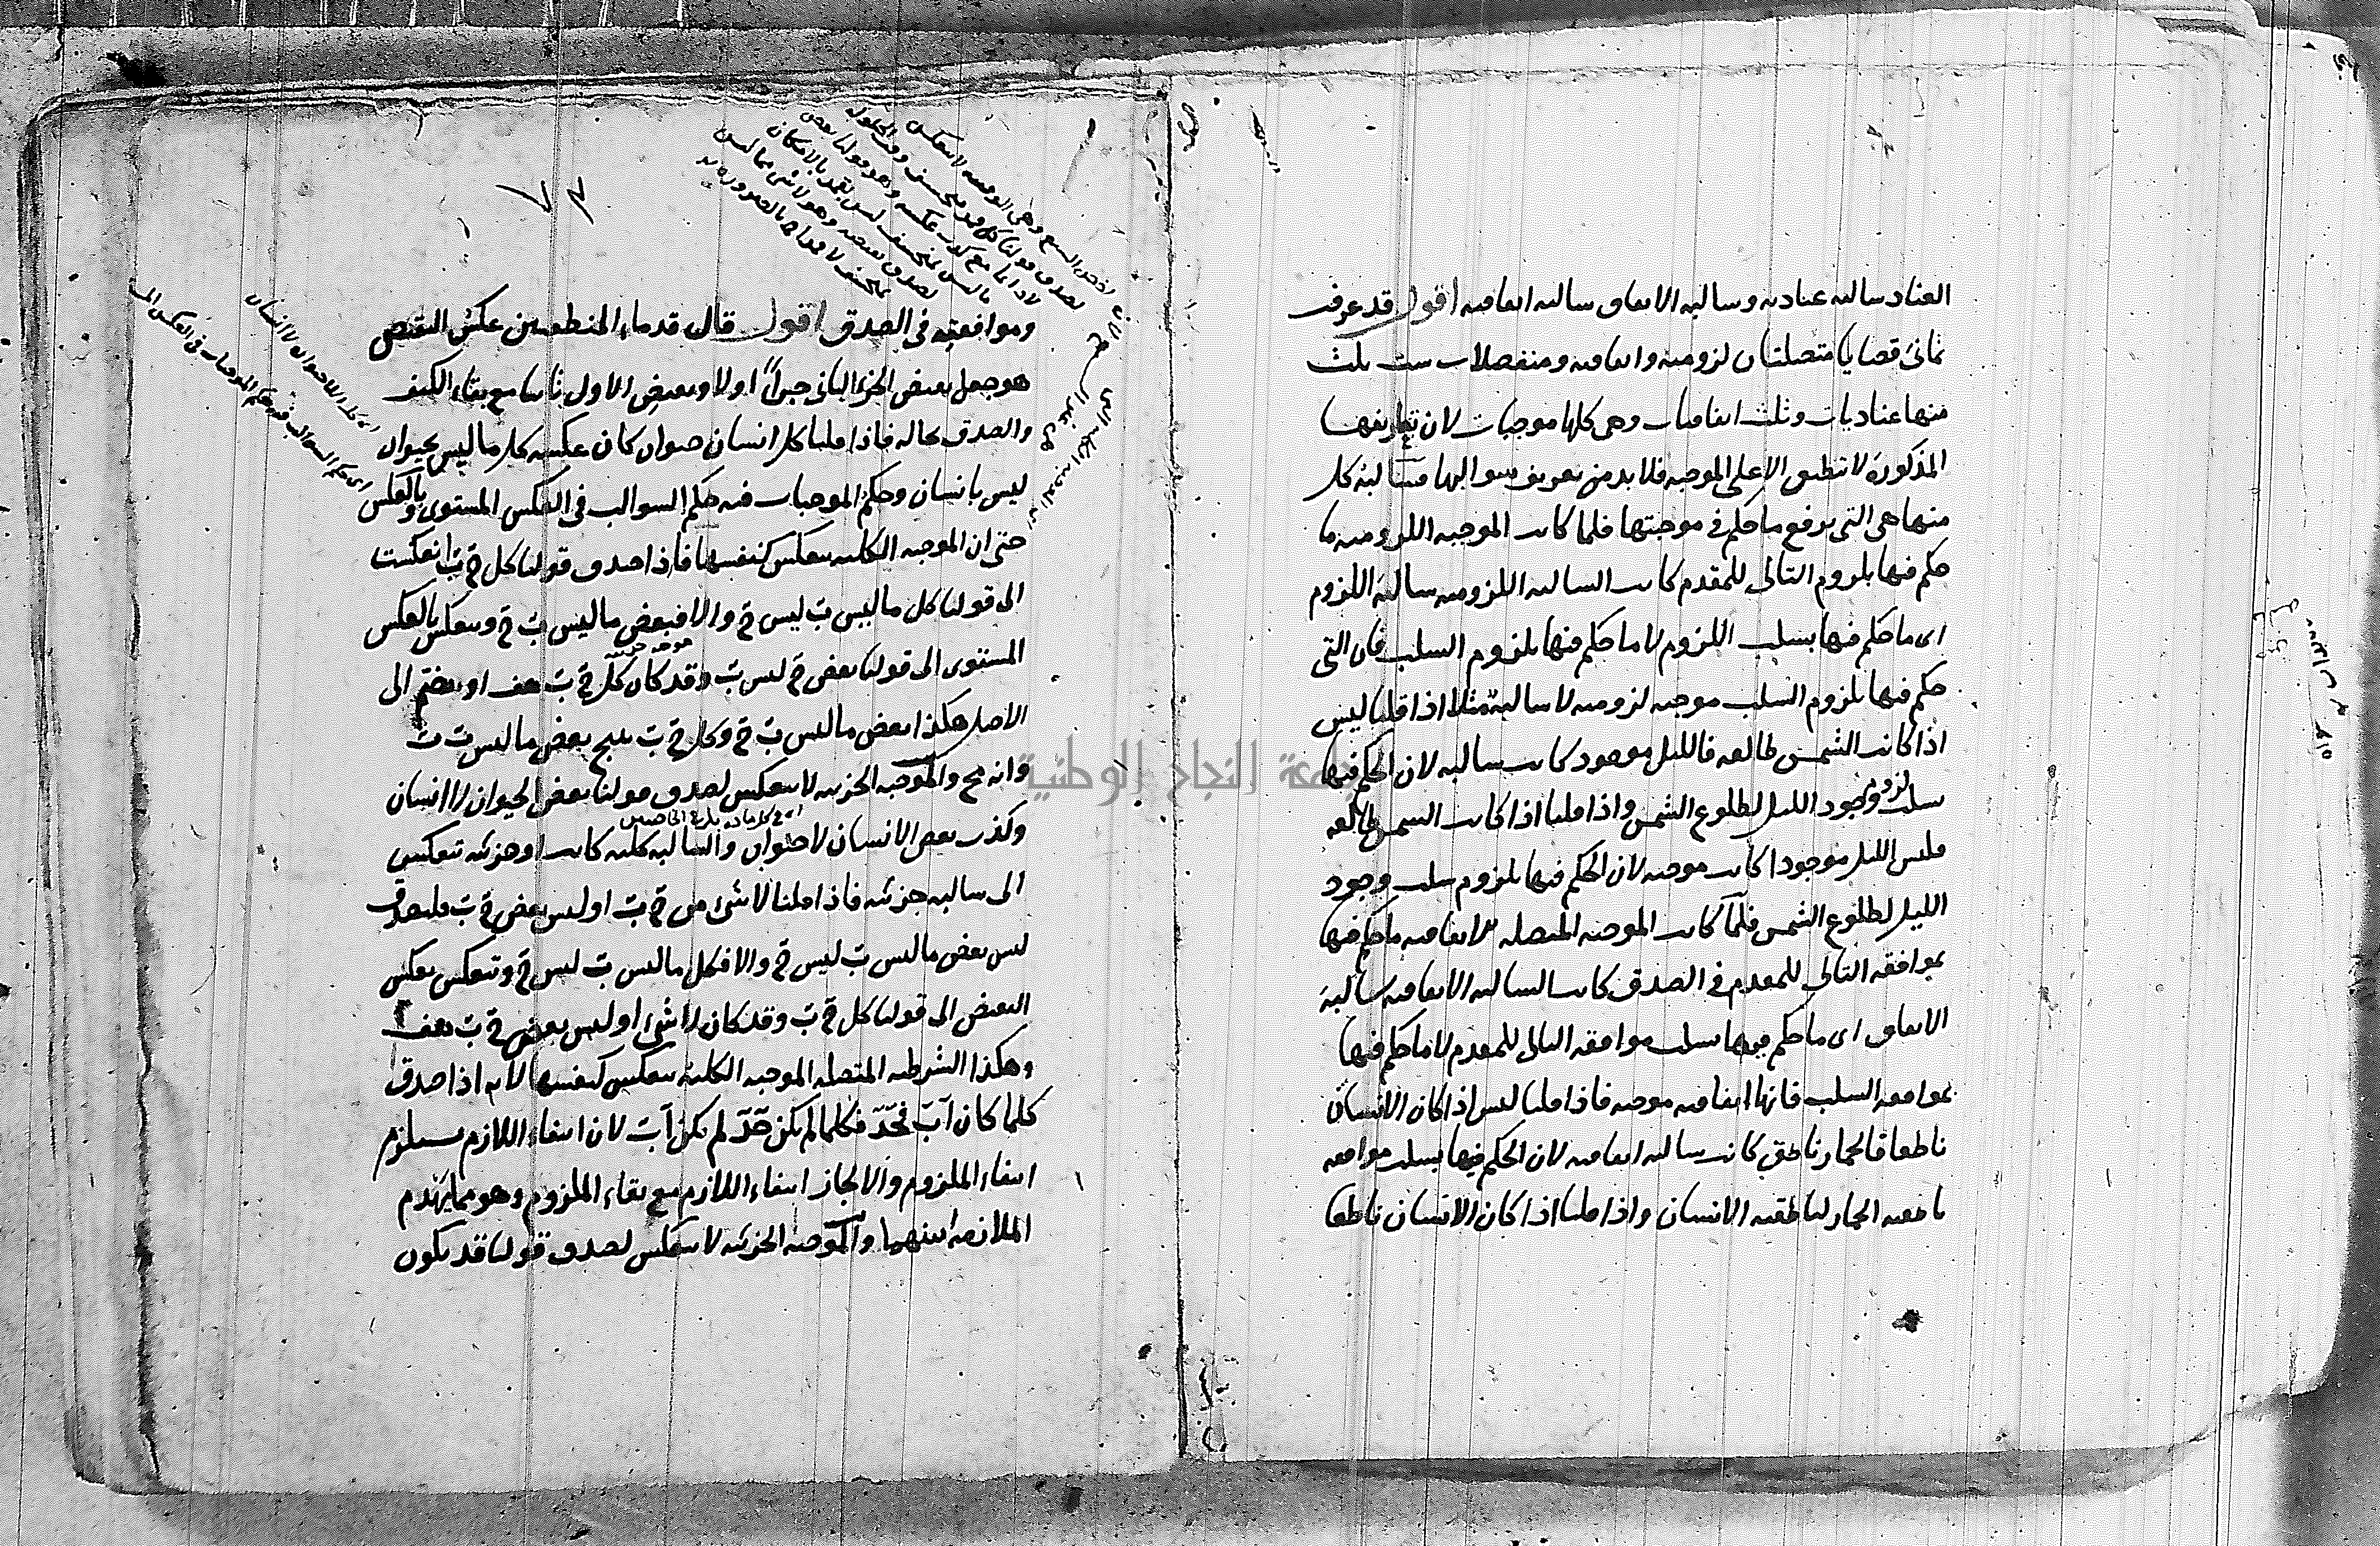 العناد سالبه عناديه وسالبه الاتفاق سالبه اتفاقيه اقول قد عرفت
ثمانى قضايا متصلتان لزوميه واتفاقيه ومنفصلات ست ثلث
منها عناديات وثلث اتفاقيات وهى كلها موجبات لان تعاريفها
المذكورة لا تنطبق الا على الموجبه فلا بد من تعريف سوالبها فسالبة كل
منها هى التى يرفع ما حكم فى موجبتها فلما كانت الموجبه اللزوميه ما
حكم فيها بلزوم التالى للمقدم كانت السالبه اللزوميه سالبة اللزوم
اى ما حكم فيها بسلب اللزوم لا ما حكم فيها بلزوم السلب فان التى
حكم فيها بلزوم السلب موجبه لزوميه لا سالبة مثلا اذا قلنا ليس
اذا كانت الشمس طالعه فالليل موجود كانت سالبه لان الحكم فيها
سلب لزوم وجود الليل لطلوع الشمس واذا قلنا اذا كانت الشمس طالعه
فليس الليل موجودا كانت موجبه لان الحكم فيها بلزوم سلب وجود
الليل لطلوع الشمس فلما كانت الموجبه المتصله الاتفاقيه ما حكم فيها
بموافقه التالى للمقدم فى الصدق كانت السالبه الاتفاقيه سالبة
الاتفاق اى ما حكم فيها بسلب موافقه التالى للمقدم لا ما حكم فيها
بموافقه السلب فانها اتفاقيه موجبه فاذا قلنا ليس اذا كان الانسان
ناطقا فالحمار ناطق كانت سالبه اتفاقيه لان الحكم فيها بسلب موافقه
ناطقيه الحمار لناطقيه الانسان واذا قلنا اذا كان الانسان ناطقا
وموافقته فى الصدق اقول قال قدماء المنطقيين عكس النقيض
هو جعل نقيض الجزء الثانى جزأ اولا ونقيض الاول ثانيا مع بقاء الكيف
والصدق بحاله فاذا قلنا كل انسان حيوان كان عكسه كل ما ليس بحيوان
ليس بانسان وحكم الموجبات فيه حكم السوالب فى العكس المستوى وبالعكس
حتى ان الموجبه الكليه تنعكس كنفسها فاذا صدق قولنا كل ج ب انعكست
الى قولنا كل ما ليس ب ليس ج والا فبعض ما ليس ب ج وتنعكس بالعكس
المستوى الى قولنا بعض ج ليس ب وقد كان كل ج ب هف او ينضم الى
الاصل هكذا بعض ما ليس ب ج وكل ج ب ينتج بعض ما ليس ب ب
وانه مح والموجبه الجزئيه لا تنعكس لصدق قولنا بعض الحيوان لا انسان
وكذب بعض الانسان لا حيوان والسالبه كليه كانت او جزئيه تنعكس
الى سالبه جزئيه فاذا قلنا لا شئ من ج ب او ليس بعض ج ب فليصدق
ليس بعض ما ليس ب ليس ج والا فكل ما ليس ب ليس ج وتنعكس بعكس
النقيض الى قولنا كل ج ب وقد كان لا شئ او ليس بعض ج ب هف
وهكذا الشرطيه المتصله الموجبه الكليه تنعكس كنفسها لانه اذا صدق
كلما كان اب فجد فكلما لم يكن جد لم يكن اب لان انتفاء اللازم يستلزم
انتفاء الملزوم والا لجاز انتفاء اللازم مع بقاء الملزوم وهو مما يهدم
الملازمه بينهما والموجبه الجزئيه لا تنعكس لصدق قولنا قد يكون
جامعة النجاح الوطنية